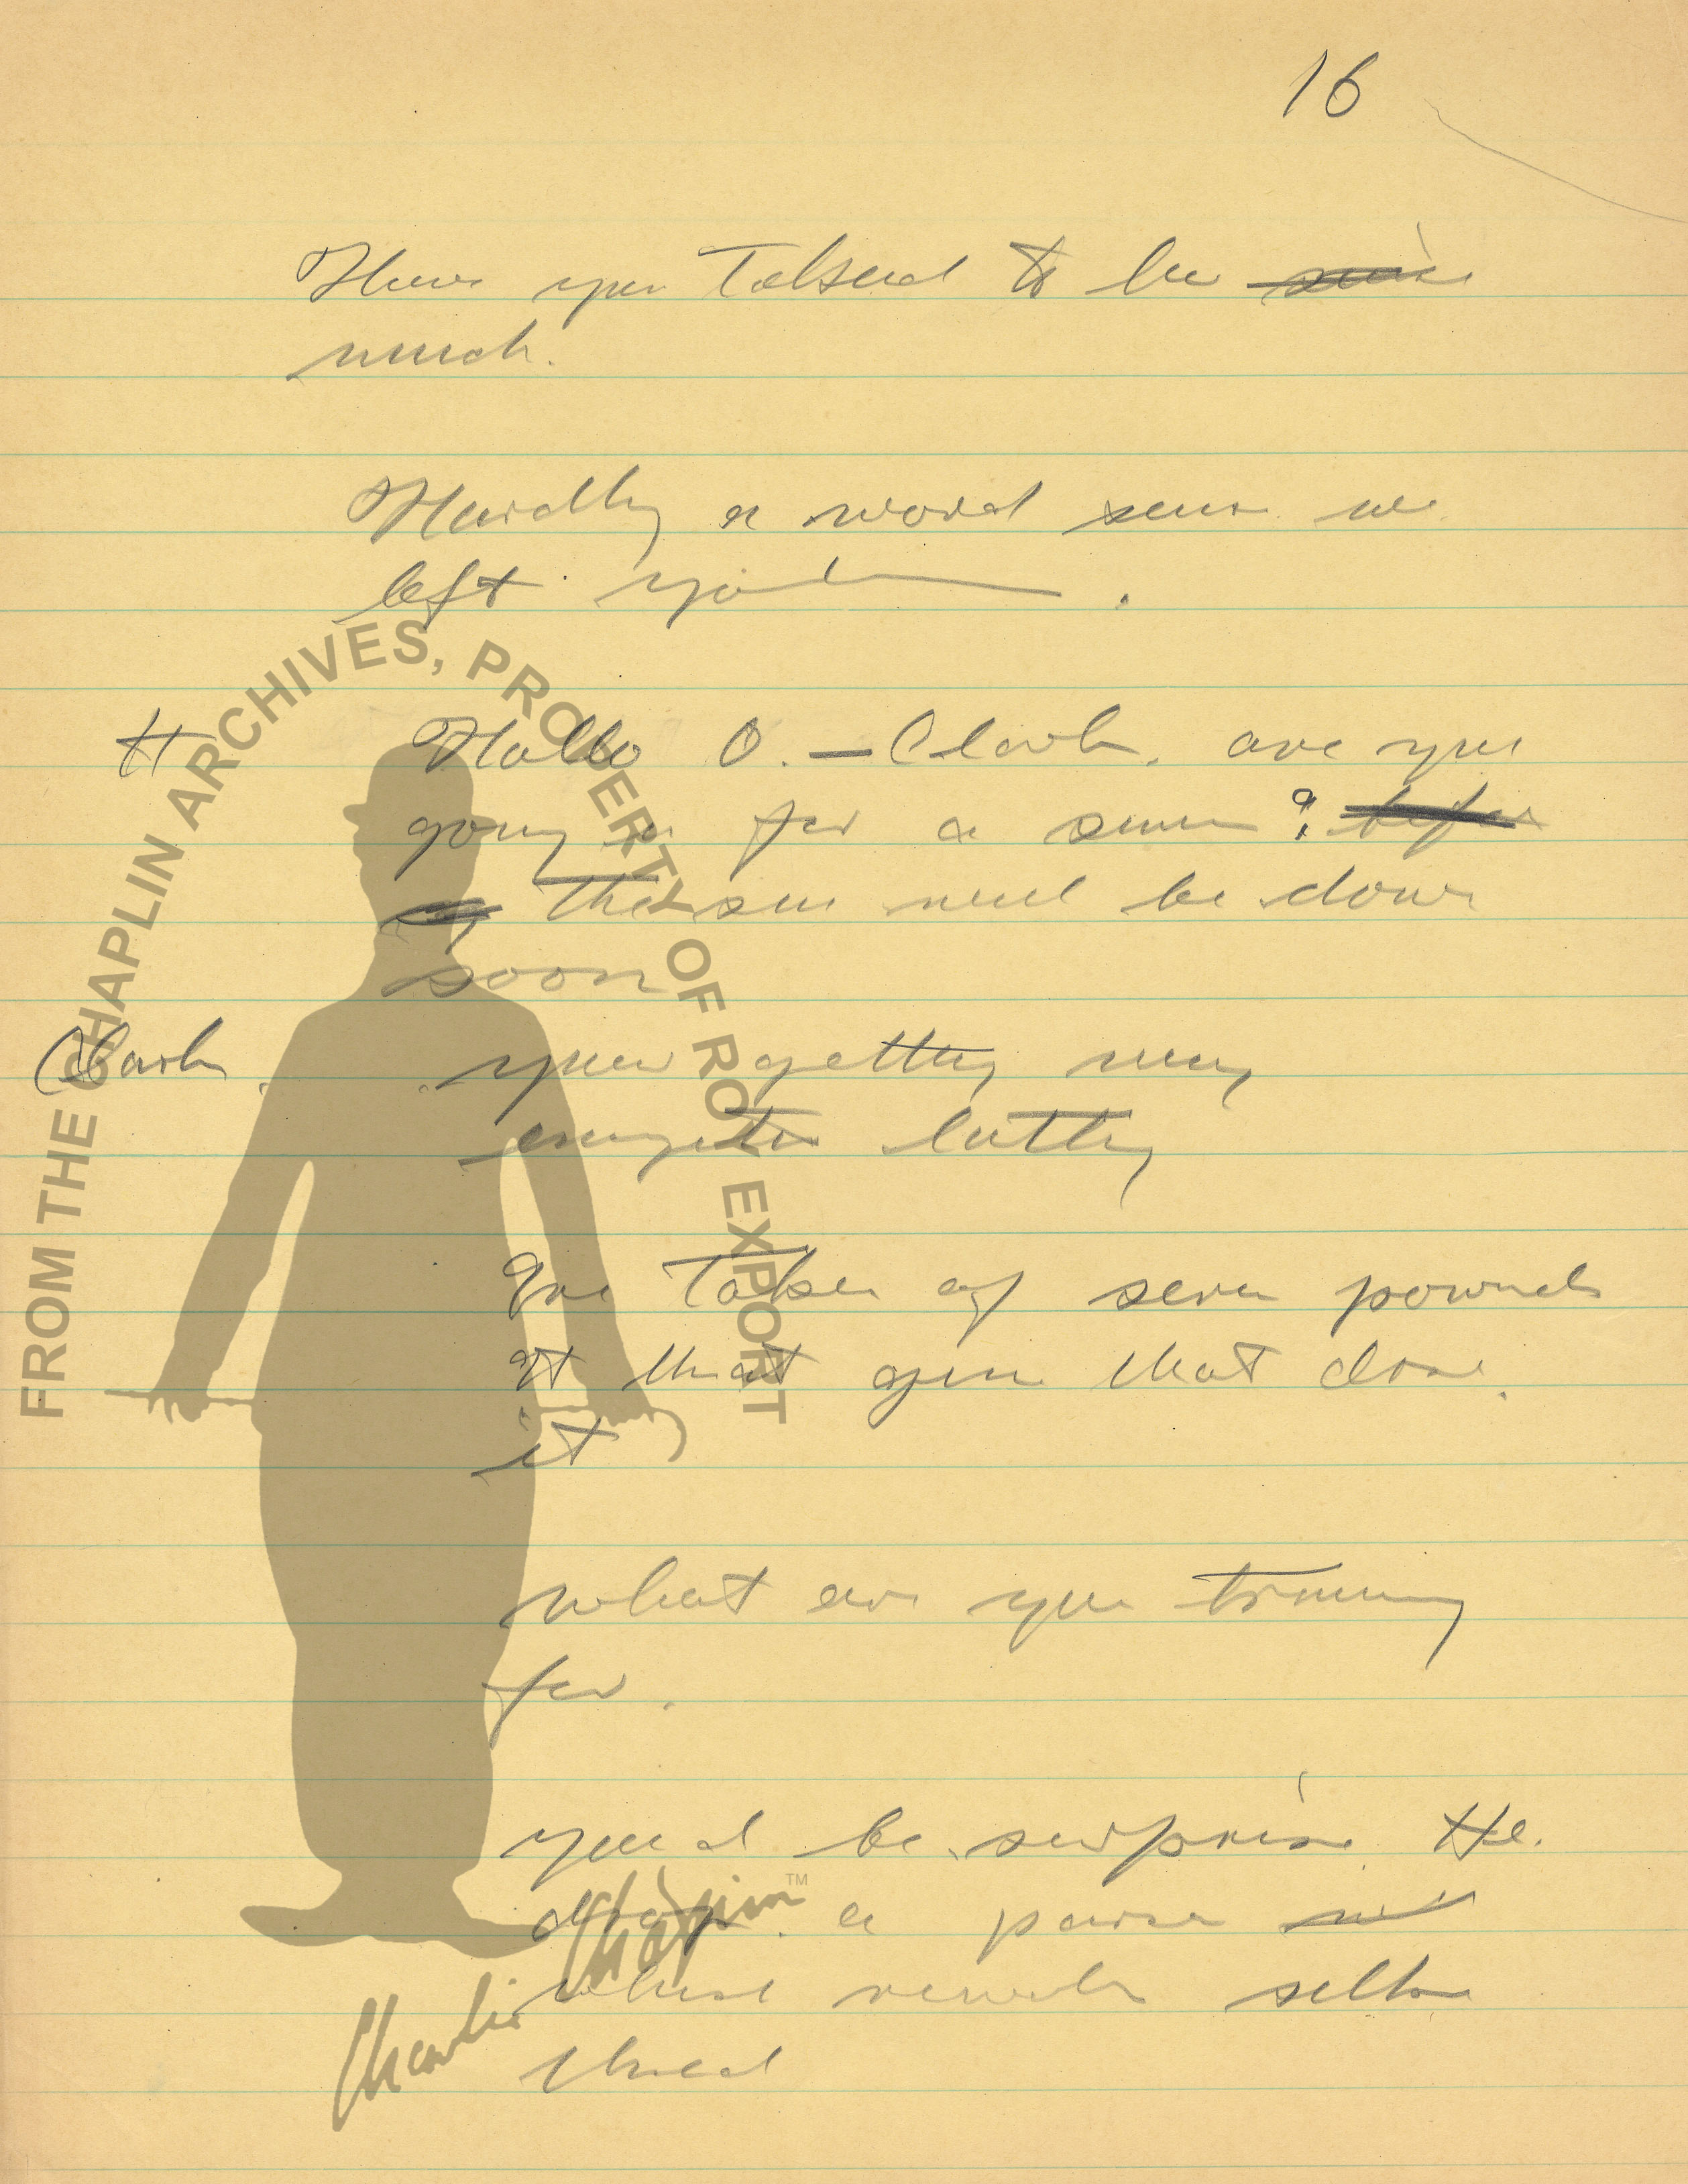 16
Have you talked to her
much.
Hardly a word since we
left
H Hallo O. — Clark. are you
going in for a swim ?
the sun will be down
soon
Clark. your getting very
energetic lately
Ive taken of seven pounds
at that gym that done
it
what are you training
for.
you d be surprise. He.
drop. a pause
while
FROM THE CHAPLIN ARCHIVES, PROPERTY OF ROY EXPORT
Charlie Chaplin TM